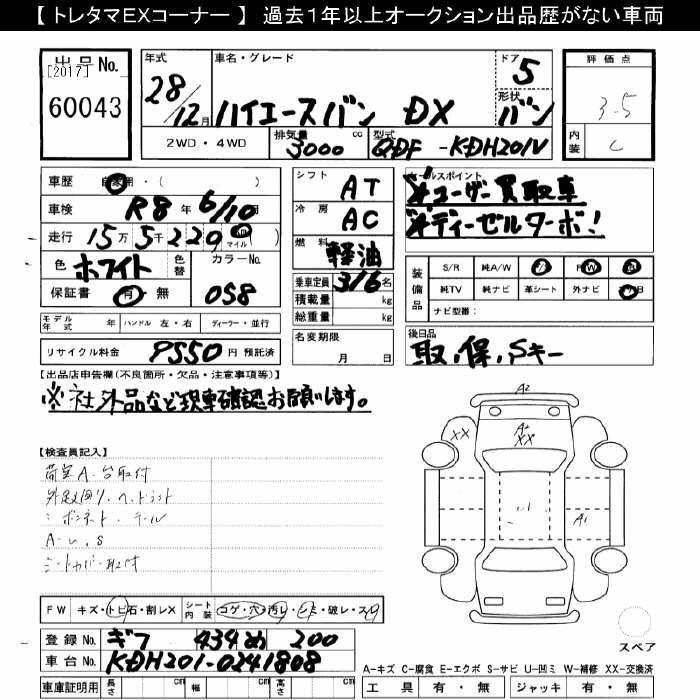 【 トレタマEXコーナー 】 過去１年以上オークション出品歴がない車両
出品 No.
[2017]
60043
年式
28/12月
車名・グレード
ハイエースバン DX
ドア
5
形状
バン
評価点
3.5
内装
C
2WD・4WD
排気量 3000 cc
型式 QDF - KDH201V
車歴 自家用・( )
車検 R8年 6/10
走行 15万 5千 229 マイル
色 ホワイト 色替
カラーNo. 058
保証書 有・無
シフト AT
冷房 AC
燃料 軽油
乗車定員 3/6 名
積載量 kg
総重量 kg
セールスポイント
※ユーザー買取車
※ディーゼルターボ!
装備品
S/R 純A/W
純TV 純ナビ 革シート 外ナビ
ナビ型番:
モデル年式 年 ハンドル 左・右 ディーラー・並行
リサイクル料金 9550 円 預託済
名変期限 月 日
後日品
取、保、Sキー
【出品店申告欄(不良箇所・欠品・注意事項等)】
※社外品など現車確認お願いします。
【検査員記入】
荷室A.台取付
シートカバー取付
A2
A2
XX
XX
A1
FW キズ・トビ石・割レX
シート内装 コゲ・穴・汚レ・シミ・破レ・スレ
登録No. ギフ 434 200
車台No. KDH201-0241808
車庫証明用 長さ cm 幅 cm 高さ cm
スペア
A-キズ C-腐食 E-エクボ S-サビ U-凹ミ W-補修 XX-交換済
工具 有・無 ジャッキ 有・無